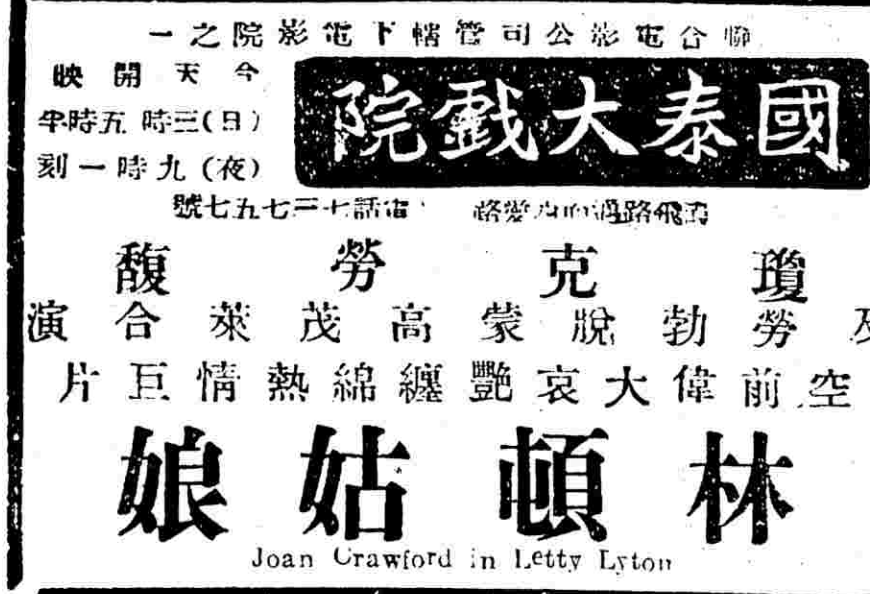 聯合電影公司管轄下電影院之一
國泰大戲院
今天開映
(日)三時 五時半
(夜)九時一刻
霞飛路邁而西愛路 電話七三七五七號
瓊克勞馥
及勞勃脫蒙高茂萊合演
空前偉大哀艷纏綿熱情巨片
林頓姑娘
Joan Crawford in Letty Lyton